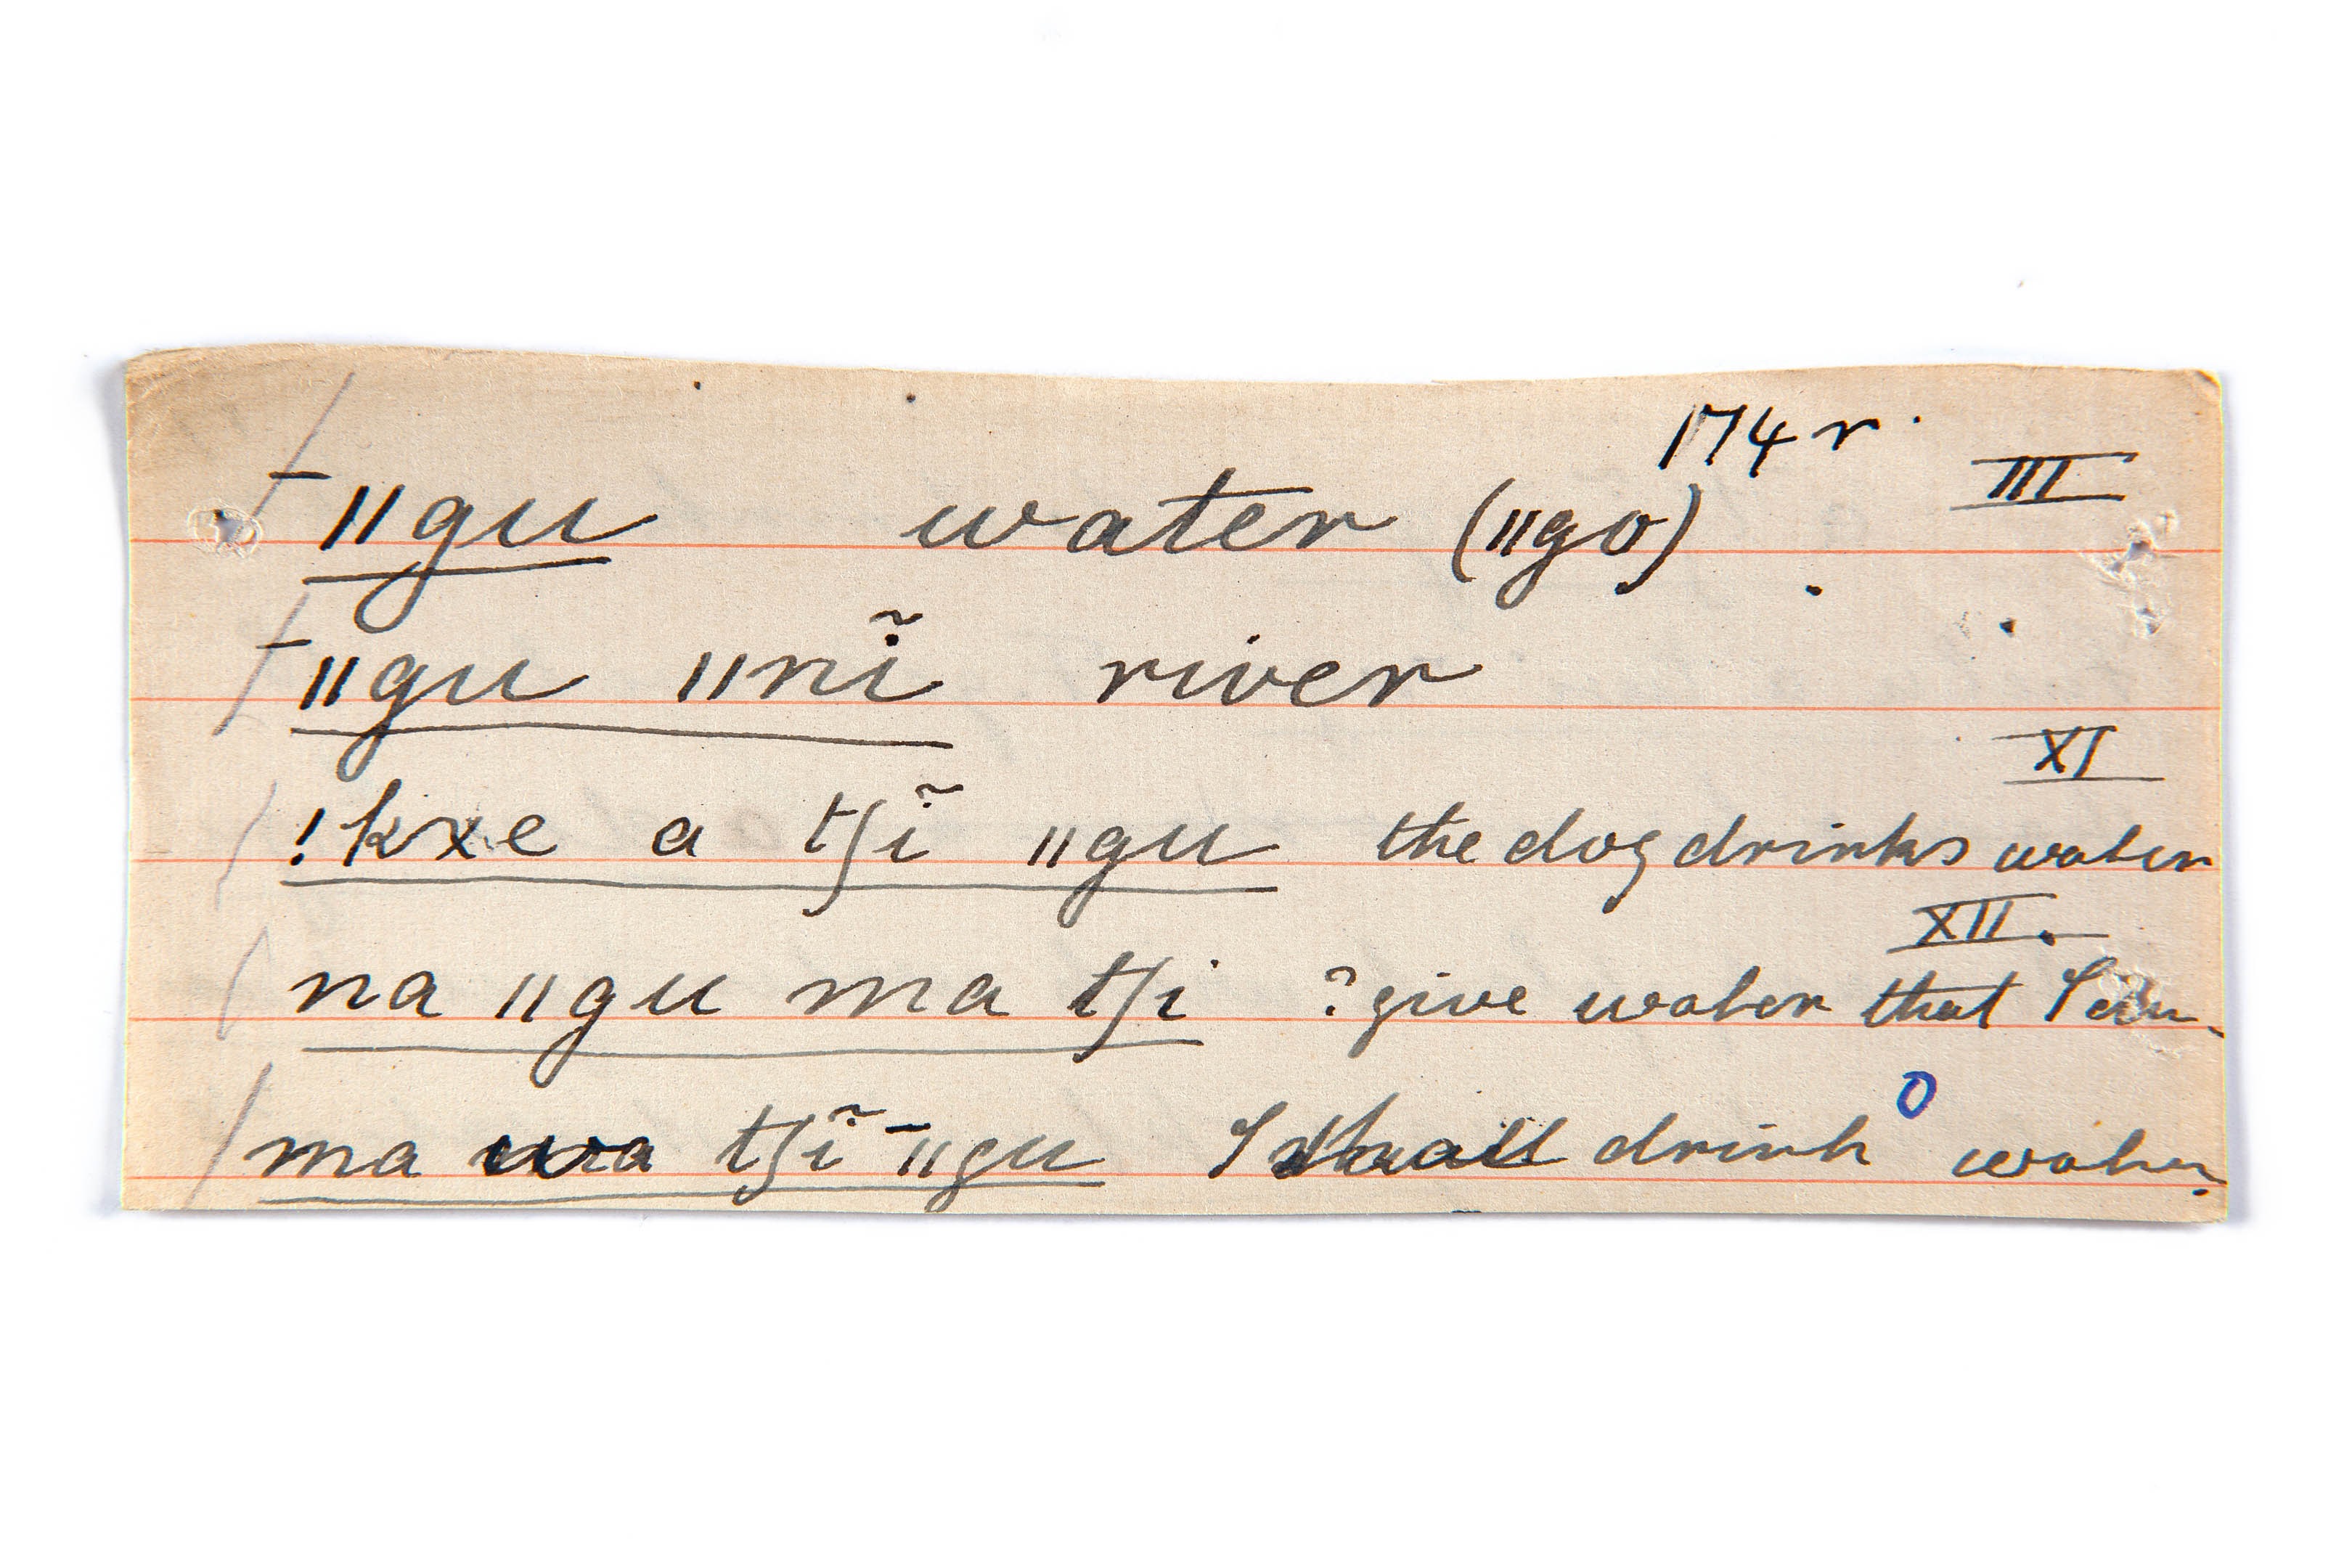 174 r.
ǁgu water (ǁgo) III
ǁgu ǁnĩ river
XI
!kxe a tʃĩ ǁgu the dog drinks water
XII.
na ǁgu ma tʃi ? give water that I
ma wa tʃĩ ‾ǁgu I shall drink water.